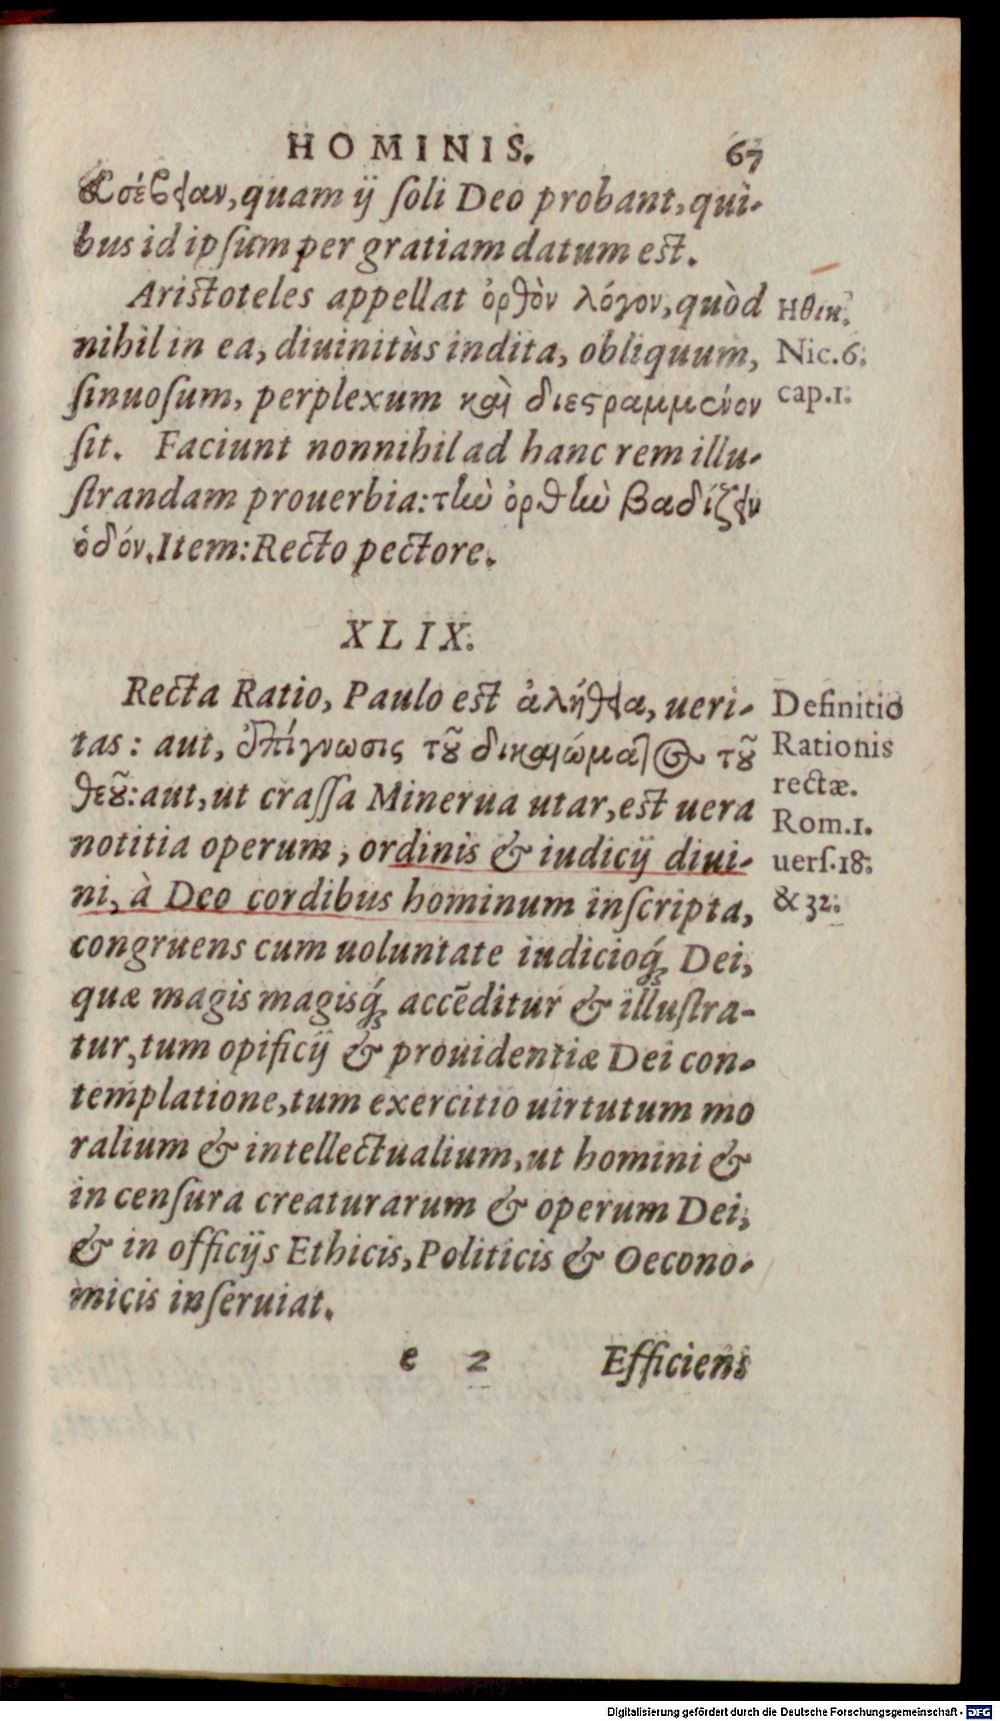 HOMINIS. 67
εὐσέβειαν, quam ij ſoli Deo probant, qui-
bus id ipſum per gratiam datum est.
Aristoteles appellat ὀρθὸν λόγον, quòd
nihil in ea, diuinitùs indita, obliquum,
ſinuoſum, perplexum καὶ διεςραμμένον
ſit. Faciunt nonnihil ad hanc rem illu-
ſtrandam prouerbia: τὴν ὀρθὴν βαδίζειν
ὁδόν. Item: Recto pectore.
Ηθικ.
Nic.6.
cap.1.
XLIX.
Recta Ratio, Paulo est ἀλήθεια, ueri-
tas: aut, ἐπίγνωσις τοῦ δικαιώματος τοῦ
θεοῦ: aut, ut craſſa Minerua utar, est uera
notitia operum, ordinis & iudicij diui-
ni, à Deo cordibus hominum inſcripta,
congruens cum uoluntate iudicioq́; Dei,
quæ magis magisq́; accēditur & illuſtra-
tur, tum opificij & prouidentiæ Dei con-
templatione, tum exercitio uirtutum mo
ralium & intellectualium, ut homini &
in cenſura creaturarum & operum Dei,
& in officijs Ethicis, Politicis & Oecono-
micis inſeruiat.
Definitio
Rationis
rectæ.
Rom.1.
uerſ.18.
& 32.
e 2 Efficiens
Digitalisierung gefördert durch die Deutsche Forschungsgemeinschaft - DFG